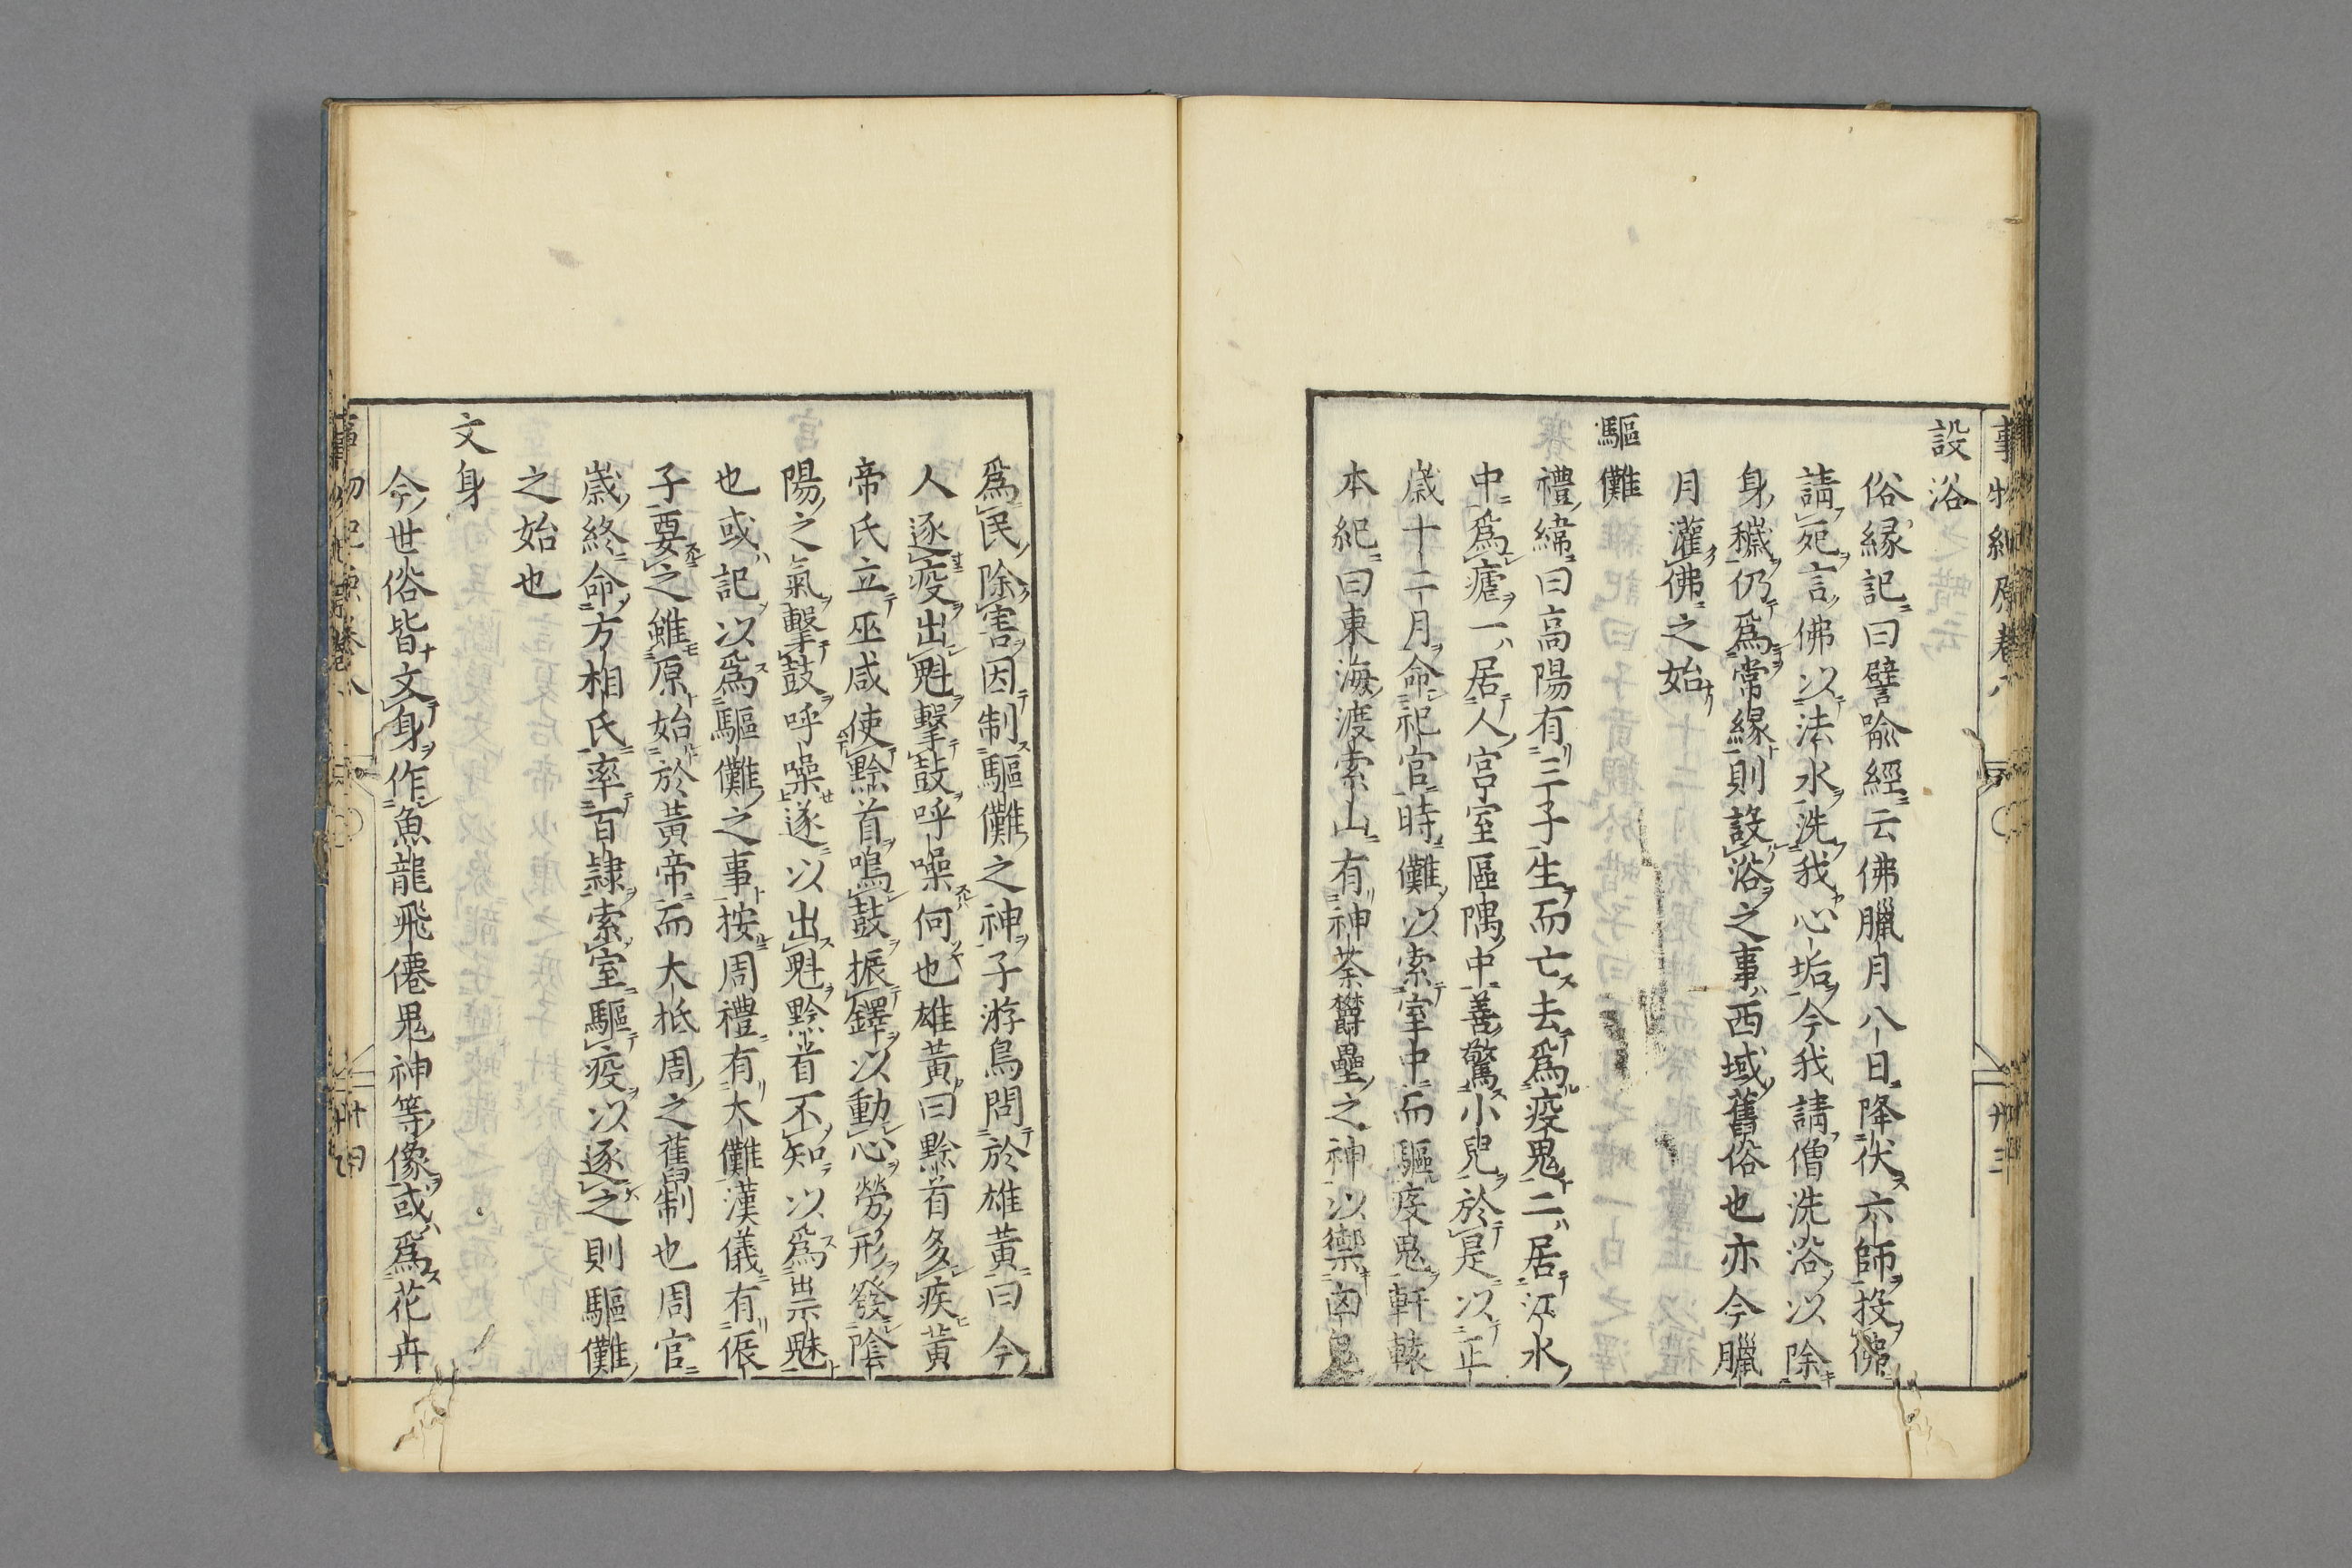 設浴
俗緣記曰譬喻經云佛臘月八日降伏六師投佛
請死言佛以法水洗我心垢今我請僧洗浴以除
身穢仍爲常緣則設浴之事西域舊俗也亦今臘
月灌佛之始
驅儺
禮緯曰高陽有三子生而亡去爲疫鬼二居江水
中爲瘧一居人宮室區隅中善驚小兒於是以正
歲十二月命祀官時儺以索室中而驅疫鬼軒轅
本紀曰東海渡索山有神荼欝壘之神以禦凶鬼
爲民除害因制驅儺之神子游鳥問於雄黃曰今
人逐疫出魁擊鼓呼噪何也雄黃曰黔首多疾黃
帝氏立巫咸使黔首鳴鼓振鐸以動心勞形發陰
陽之氣擊鼓呼噪遂以出魁黔首不知以爲祟魅
也或記以爲驅儺之事按周禮有大儺漢儀有侲
子要之雖原始於黃帝而大抵周之舊制也周官
歲終命方相氏率百隸索室驅疫以逐之則驅儺
之始也
文身
今世俗皆文身作魚龍飛僊鬼神等像或爲花卉